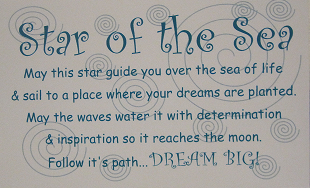 Star of the Sea
May this star guide you over the sea of life
& sail to a place where your dreams are planted.
May the waves water it with determination
& inspiration so it reaches the moon.
Follow it's path...DREAM BIG!